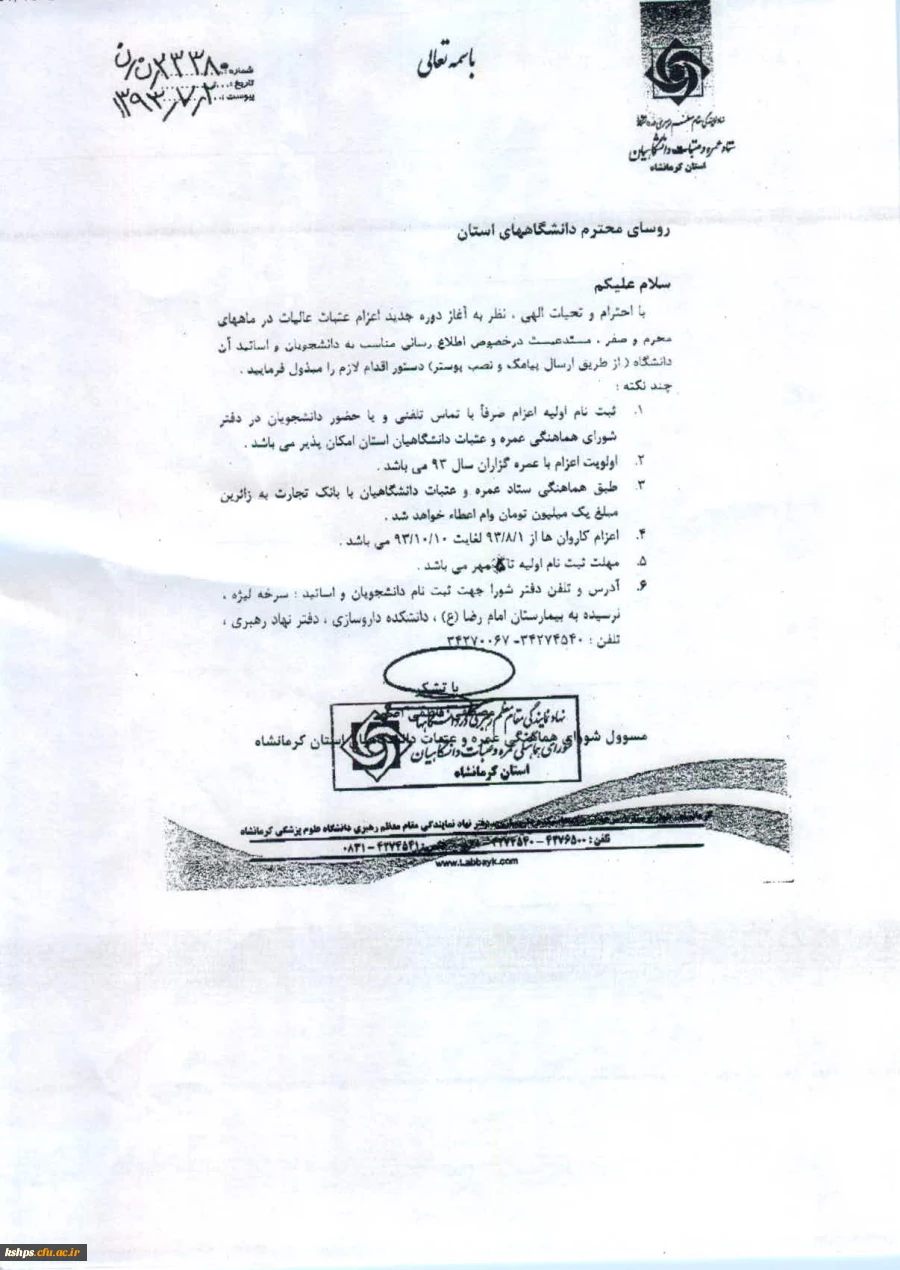 باسمه تعالی
شماره:
تاریخ:
پیوست:
ستاد عمره و عتبات دانشگاهیان
استان کرمانشاه
روسای محترم دانشگاههای استان
سلام علیکم
با احترام و تحیات الهی ، نظر به آغاز دوره جدید اعزام عتبات عالیات در ماههای
محرم و صفر ، مستدعیست درخصوص اطلاع رسانی مناسب به دانشجویان و اساتید آن
دانشگاه ( از طریق ارسال پیامک و نصب پوستر) دستور اقدام لازم را مبذول فرمایید .
چند نکته :
۱. ثبت نام اولیه اعزام صرفاً با تماس تلفنی و یا حضور دانشجویان در دفتر
شورای هماهنگی عمره و عتبات دانشگاهیان استان امکان پذیر می باشد .
۲. اولویت اعزام با عمره گزاران سال ۹۳ می باشد .
۳. طبق هماهنگی ستاد عمره و عتبات دانشگاهیان با بانک تجارت به زائرین
مبلغ یک میلیون تومان وام اعطاء خواهد شد .
۴. اعزام کاروان ها از ۹۳/۸/۱ لغایت ۹۳/۱۰/۱۰ می باشد .
۵. مهلت ثبت نام اولیه تا مهر می باشد .
۶. آدرس و تلفن دفتر شورا جهت ثبت نام دانشجویان و اساتید : سرخه لیژه ،
نرسیده به بیمارستان امام رضا (ع) ، دانشکده داروسازی ، دفتر نهاد رهبری ،
تلفن : ۳۴۲۷۴۵۴۰- ۳۴۲۷۰۰۶۷
با تشکر
نهاد نمایندگی مقام معظم رهبری در دانشگاهها
مسوول شورای هماهنگی عمره و عتبات دانشگاهیان استان کرمانشاه
شورای هماهنگی عمره و عتبات دانشگاهیان
استان کرمانشاه
دفتر نهاد نمایندگی مقام معظم رهبری دانشگاه علوم پزشکی کرمانشاه
تلفن : ۴۲۷۶۵۰۰ - ۴۲۷۴۵۴۰ - ۴۲۷۴۵۳۱ - ۰۸۳۱
www.Labbayk.com
kshps.cfu.ac.ir